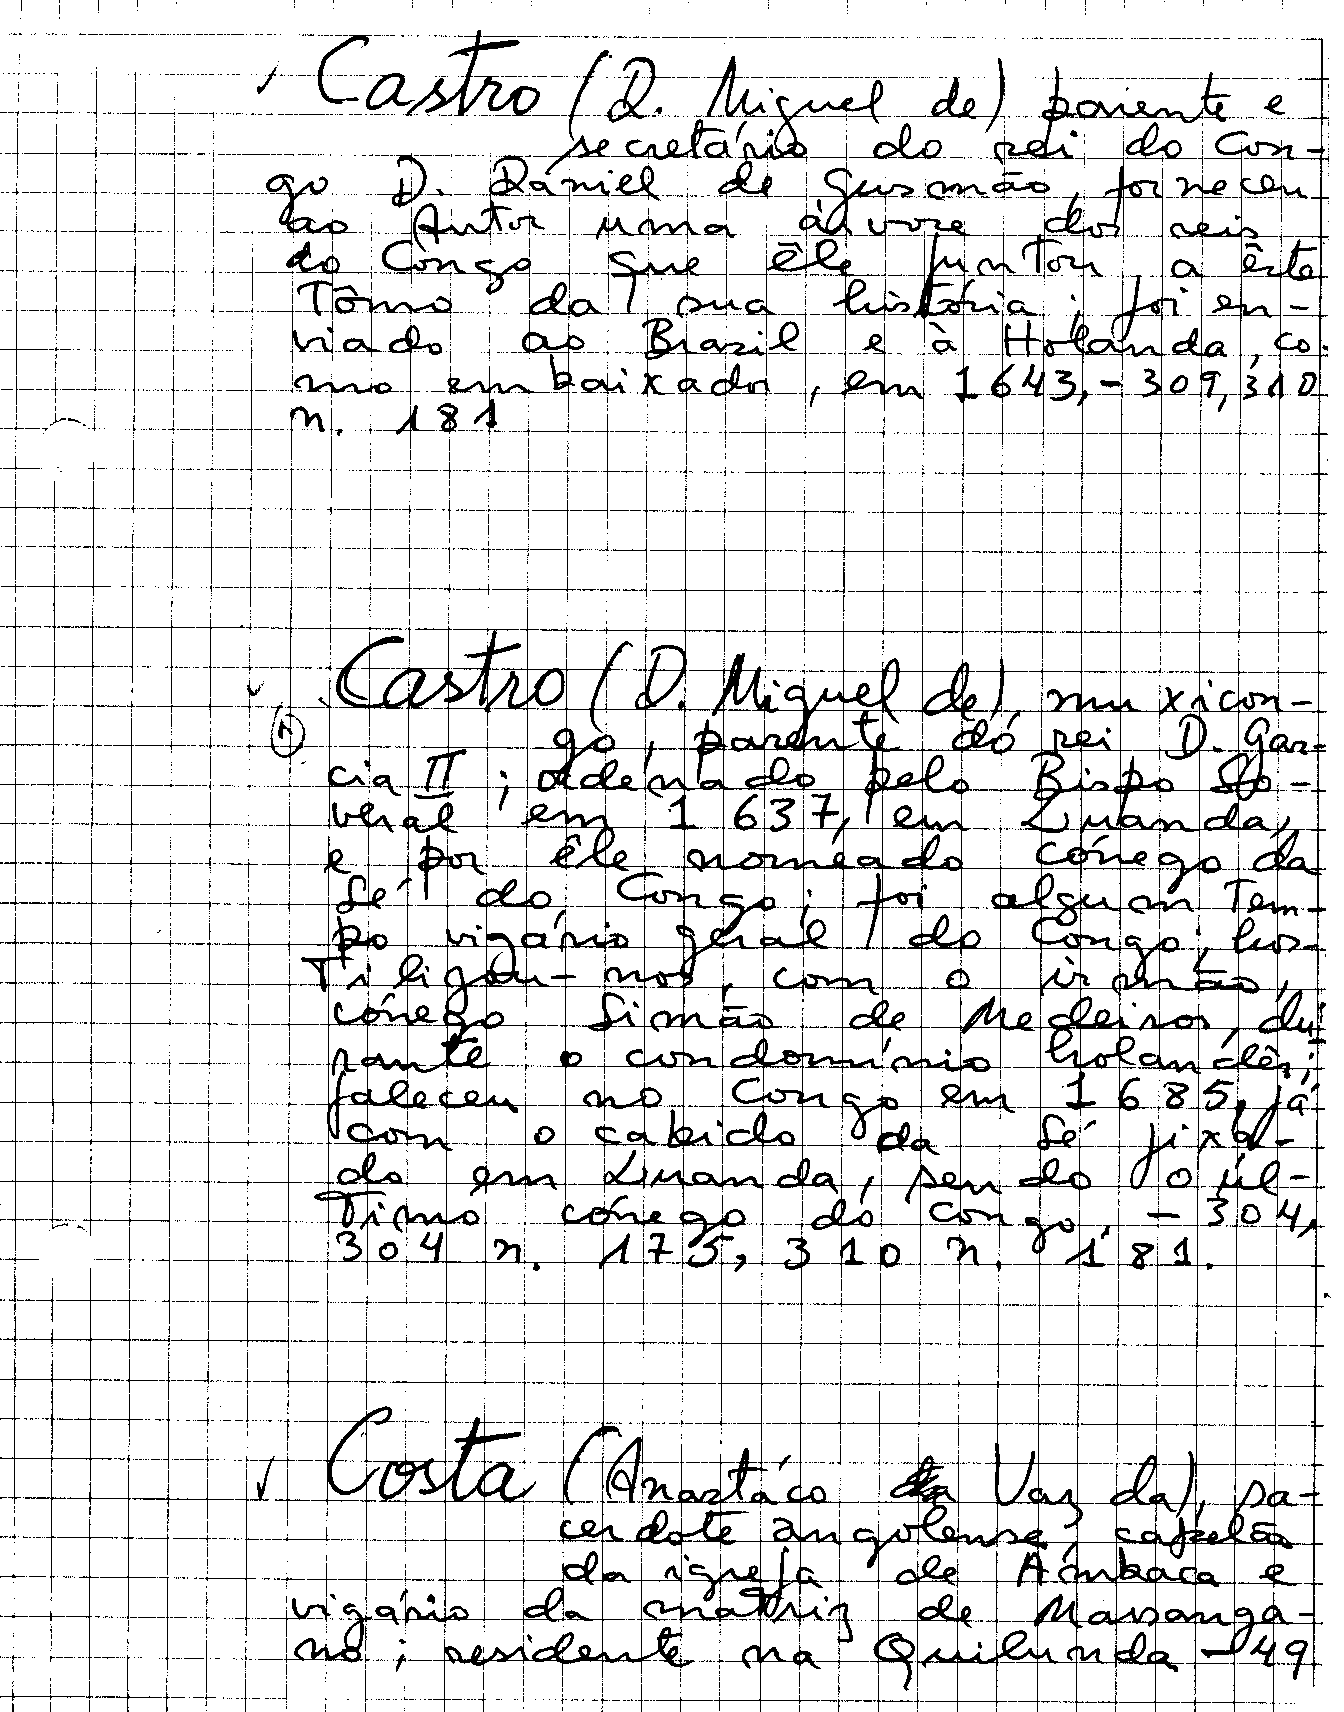 ✓ Castro (D. Miguel de) parente e
secretário do rei do Con-
go D. Daniel de Gusmão, forneceu
ao Autor uma árvore dos reis
do Congo que êle juntou a êste
Tômo da sua história; foi en-
viado ao Brazil e à Holanda, co-
mo embaixador, em 1643, - 309, 310
n. 181
✓ Castro (D. Miguel de), muxicon-
go, parente do rei D. Gar-
cia II; ordenado pelo Bispo So-
veral em 1637, em Luanda,
e por êle nomeado cónego da
Sé do Congo; foi algum Tem-
po vigário geral do Congo; hos-
Tiligou-nos, com o irmão,
cónego Simão de Medeiros, du-
rante o condomínio holandês;
faleceu no Congo em 1685, já
com o cabido da Sé fixa-
do em Luanda, sendo o úl-
Timo cónego do Congo, - 304,
304 n. 175, 310 n. 181.
✓ Costa (Anastáco Vaz da), sa-
cerdote angolense, capelão
da igreja de Ambaca e
vigário da matriz de Massanga-
no; residente na Quilunda - 49